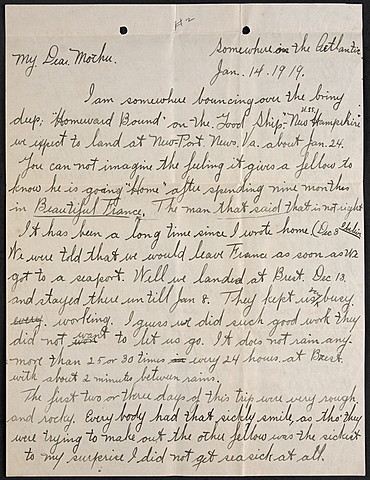 #2
Somewhere on the Atlantic
My Dear Mother. Jan. 14. 1919.
I am somewhere bouncing over the briny
deep, "Homeward Bound" on the Good Ship, "U.S.S. New Hampshire"
we expect to land at New-Port. News, Va. about Jan. 24.
You can not imagine the feeling it gives a fellow to
know he is going "Home" after spending nine months
in Beautiful France. The man that said that is not right
It has been a long time since I wrote home (Dec 3
We were told that we would leave France as soon as we
got to a seaport. Well we landed at Brest. Dec 13.
and stayed there untill Jan 8. They kept us busy.
working. I guess we did such good work they
did not want to let us go. It does not rain any
more than 25 or 30 times every 24 hours at Brest.
with about 2 minutes between rains.
The first two or three days of this trip were very rough
and rocky. Every body had that sickly smile, as tho' they
were trying to make out the other fellow was the sickest
to my surprise I did not get seasick at all.